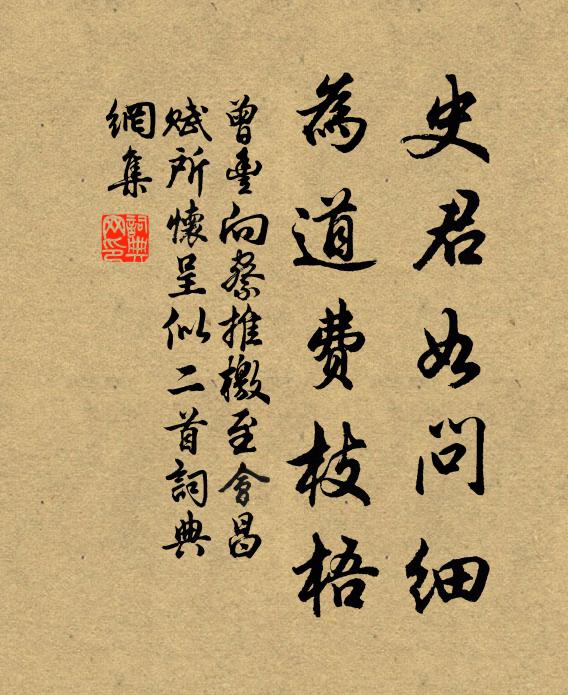 史君如問細
為道費枝梧
曾豊向察推檄至會昌
賦所懷呈似二首詞典
網集
詞典網印